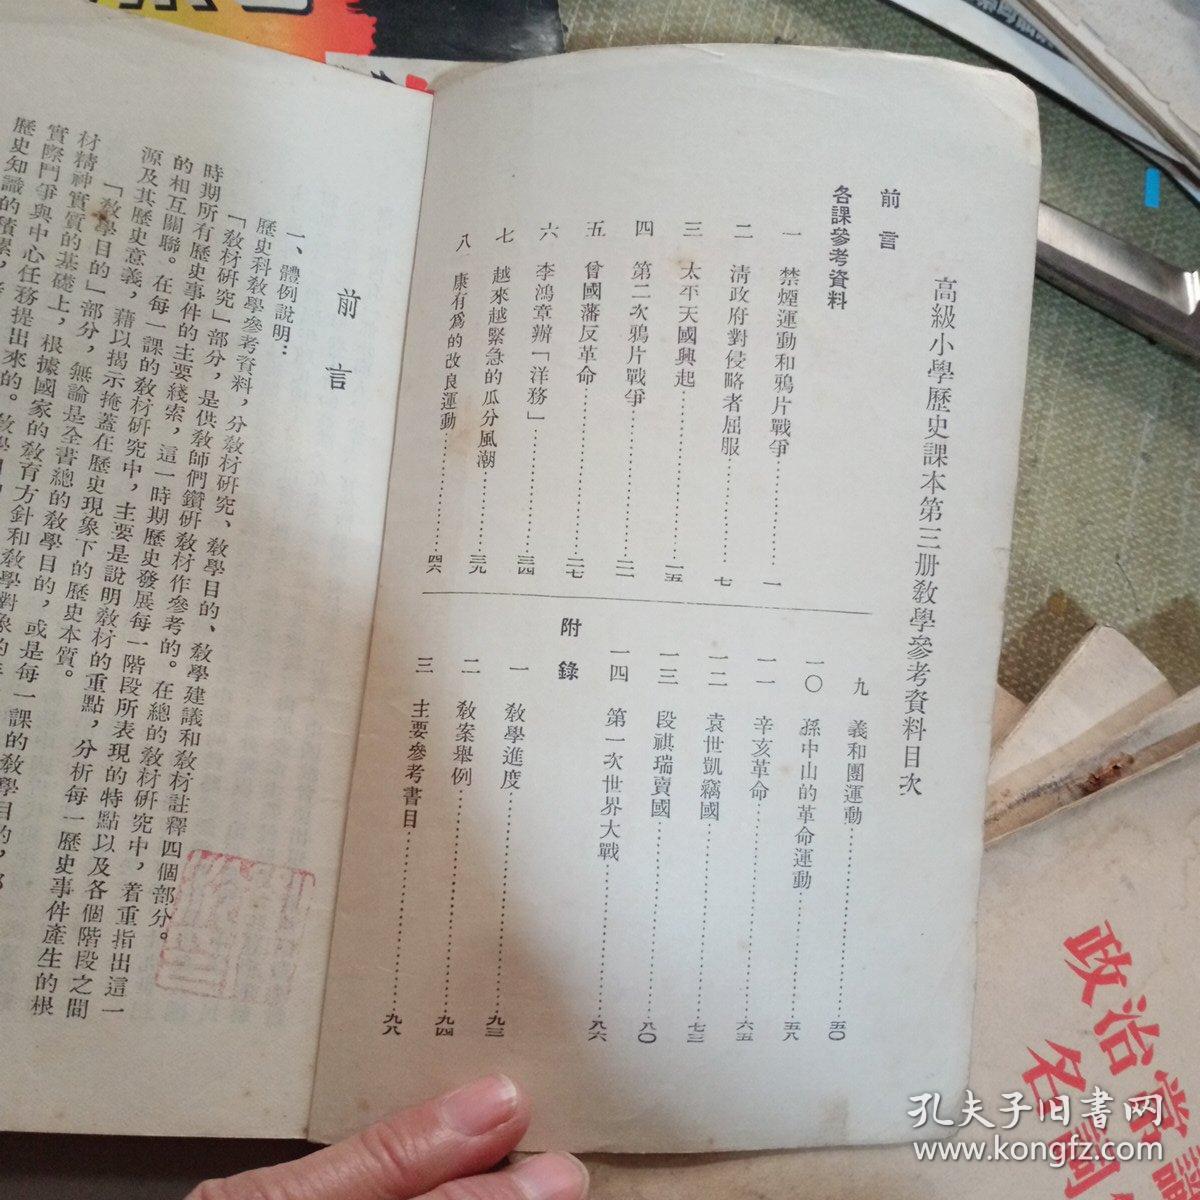 高級小學歷史課本第三册教學參考資料目次
前言
各課參考資料
一 禁煙運動和鴉片戰爭……一
二 清政府對侵略者屈服……七
三 太平天國興起……一五
四 第二次鴉片戰爭……二一
五 曾國藩反革命……二七
六 李鴻章辦「洋務」……三四
七 越來越緊急的瓜分風潮……三九
八 康有爲的改良運動……四六
九 義和團運動……五〇
一〇 孫中山的革命運動……五八
一一 辛亥革命……六五
一二 袁世凱竊國……七三
一三 段祺瑞賣國……八〇
一四 第一次世界大戰……八六
附錄
一 教學進度……九三
二 教案舉例……九四
三 主要參考書目……九八
前言
一、體例說明：
歷史科教學參考資料，分教材研究、教學目的、教學建議和教材註釋四個部分。
「教材研究」部分，是供教師們鑽研教材作參考的。在總的教材研究中，着重指出這一
時期所有歷史事件的主要綫索，這一時期歷史發展每一階段所表現的特點以及各個階段之間
的相互關聯。在每一課的教材研究中，主要是說明教材的重點，分析每一歷史事件產生的根
源及其歷史意義，藉以揭示掩蓋在歷史現象下的歷史本質。
「教學目的」部分，無論是全書總的教學目的，或是每一課的教學目的，都
材精神實質的基礎上，根據國家的教育方針和教學對象的
實際鬥爭與中心任務提出來的。教學
歷史知識的積累，
政治常
名詞
孔夫子旧書网
www.kongfz.com